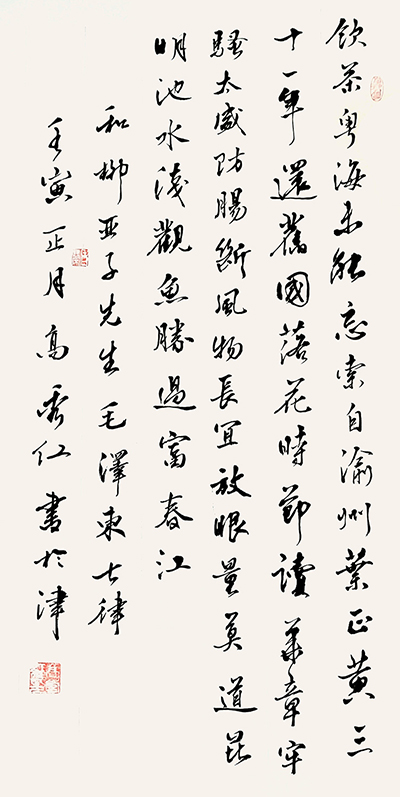 飲茶粵海未能忘索自渝州葉正黃三
十一年還舊國落花時節讀華章牢
騷太盛防腸斷風物長宜放眼量莫道昆
明池水淺觀魚勝過富春江
和柳亚子先生毛澤東七律
壬寅正月高秀仁書於津